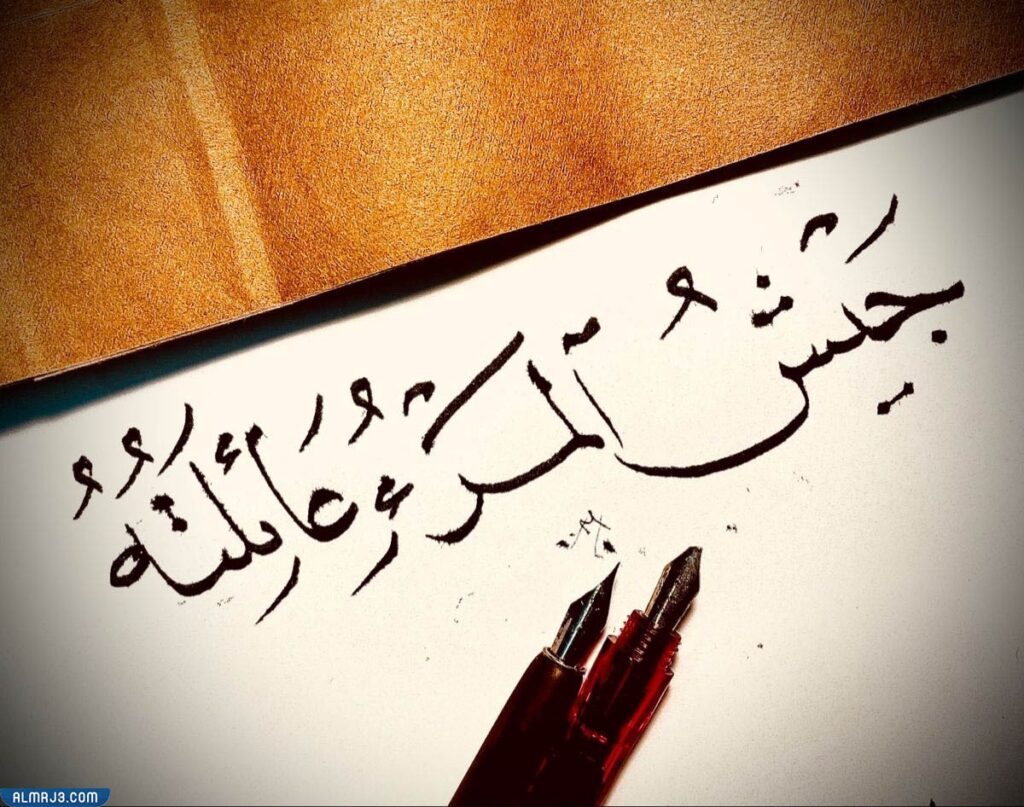 جَيْشُ الْمَرْءِ عَائِلَتُهُ
ALMRJ3.COM